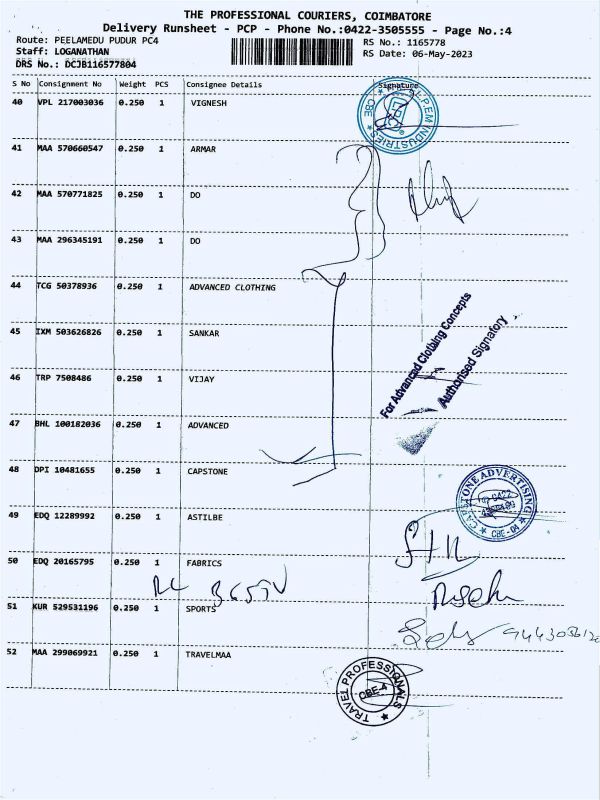 THE PROFESSIONAL COURIERS, COIMBATORE
Delivery Runsheet - PCP - Phone No.:0422-3505555 - Page No.:4
Route: PEELAMEDU PUDUR PC4
RS No.: 1165778
Staff: LOGANATHAN
RS Date: 06-May-2023
DRS No.: DCJB116577804
S No Consignment No Weight PCS Consignee Details Signature
40 VPL 217003036 0.250 1 VIGNESH
41 MAA 570660547 0.250 1 ARMAR
42 MAA 570771825 0.250 1 DO
43 MAA 296345191 0.250 1 DO
44 TCG 50378936 0.250 1 ADVANCED CLOTHING
45 IXM 503626826 0.250 1 SANKAR
For Advanced Clothing Concepts
Authorised Signatory
46 TRP 7508486 0.250 1 VIJAY
47 BHL 100182036 0.250 1 ADVANCED
48 DPI 10481655 0.250 1 CAPSTONE
CAPSTONE ADVERTISING
CBE - 04
49 EDQ 12289992 0.250 1 ASTILBE
50 EDQ 20165795 0.250 1 FABRICS
51 KUR 529531196 0.250 1 SPORTS
52 MAA 299069921 0.250 1 TRAVELMAA
TRAVEL PROFESSIONALS
CBE-4